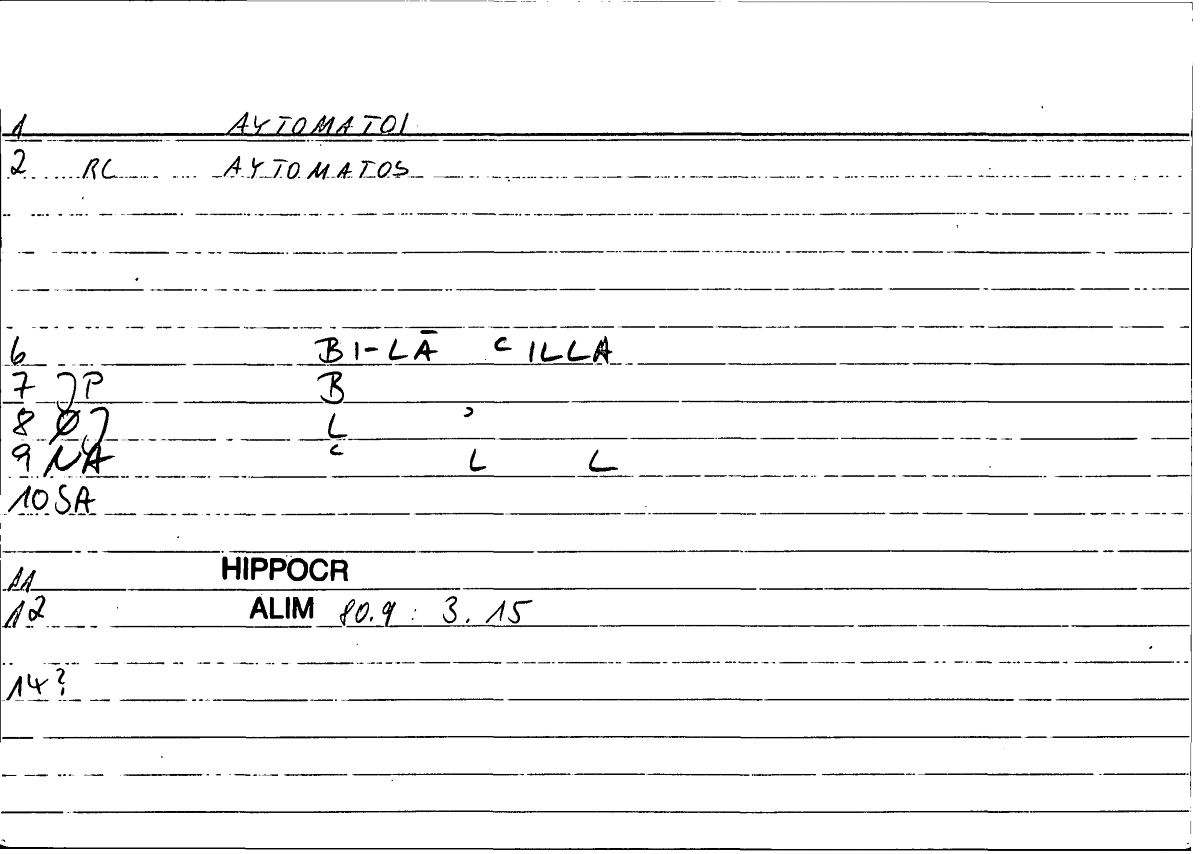 1 AYTOMATOI
2 RC AYTOMATOS
6 BI-LĀ ᶜILLA
7 JP B
8 ØJ L ʾ
9 NA ᶜ L L
10 SA
11 HIPPOCR
12 ALIM 80.9 : 3.15
14?